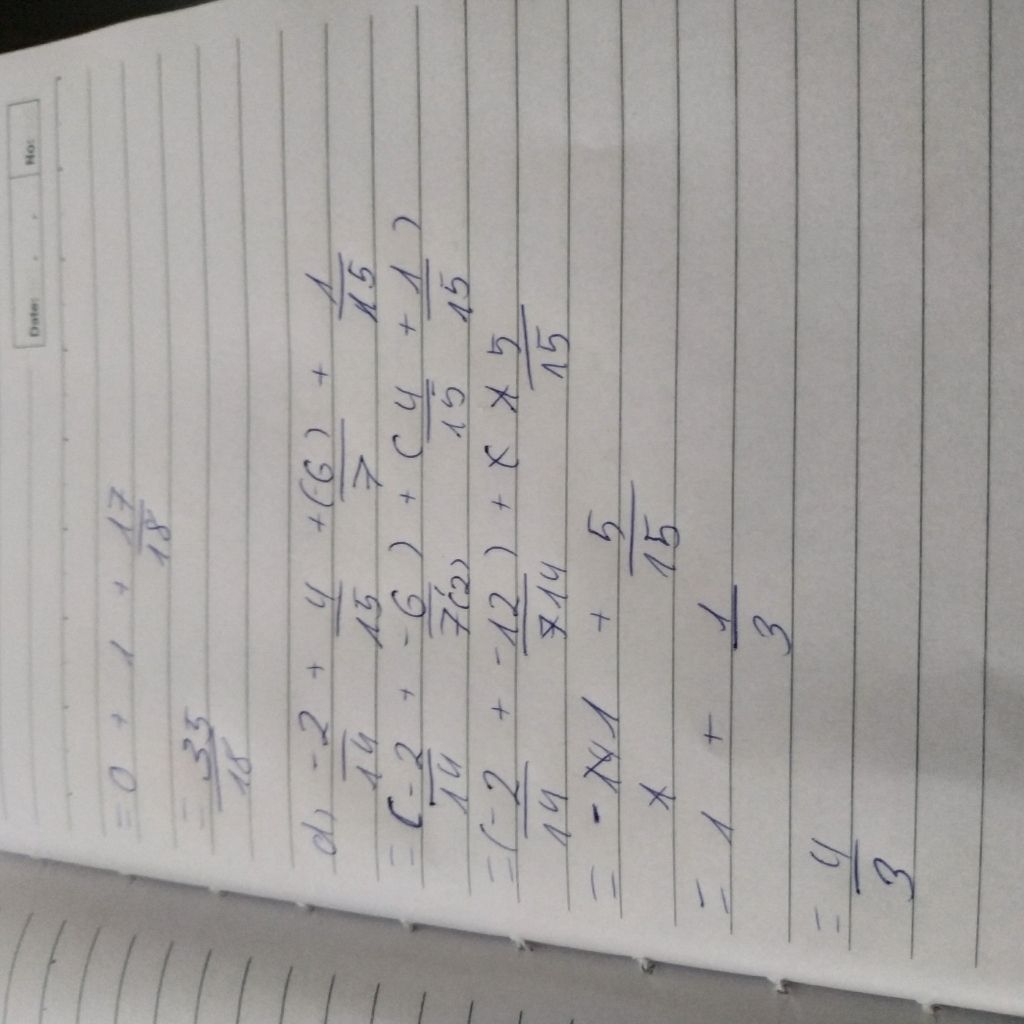 Date: No:
= 0 + 1 + 17/18
= 35/18
d, -2/14 + 4/15 + (-6)/7 + 1/15
= (-2/14 + -6/7(2)) + (4/15 + 1/15)
= (-2/14 + -12/14) + 5/15
= -1 + 5/15
= 1 + 1/3
= 4/3